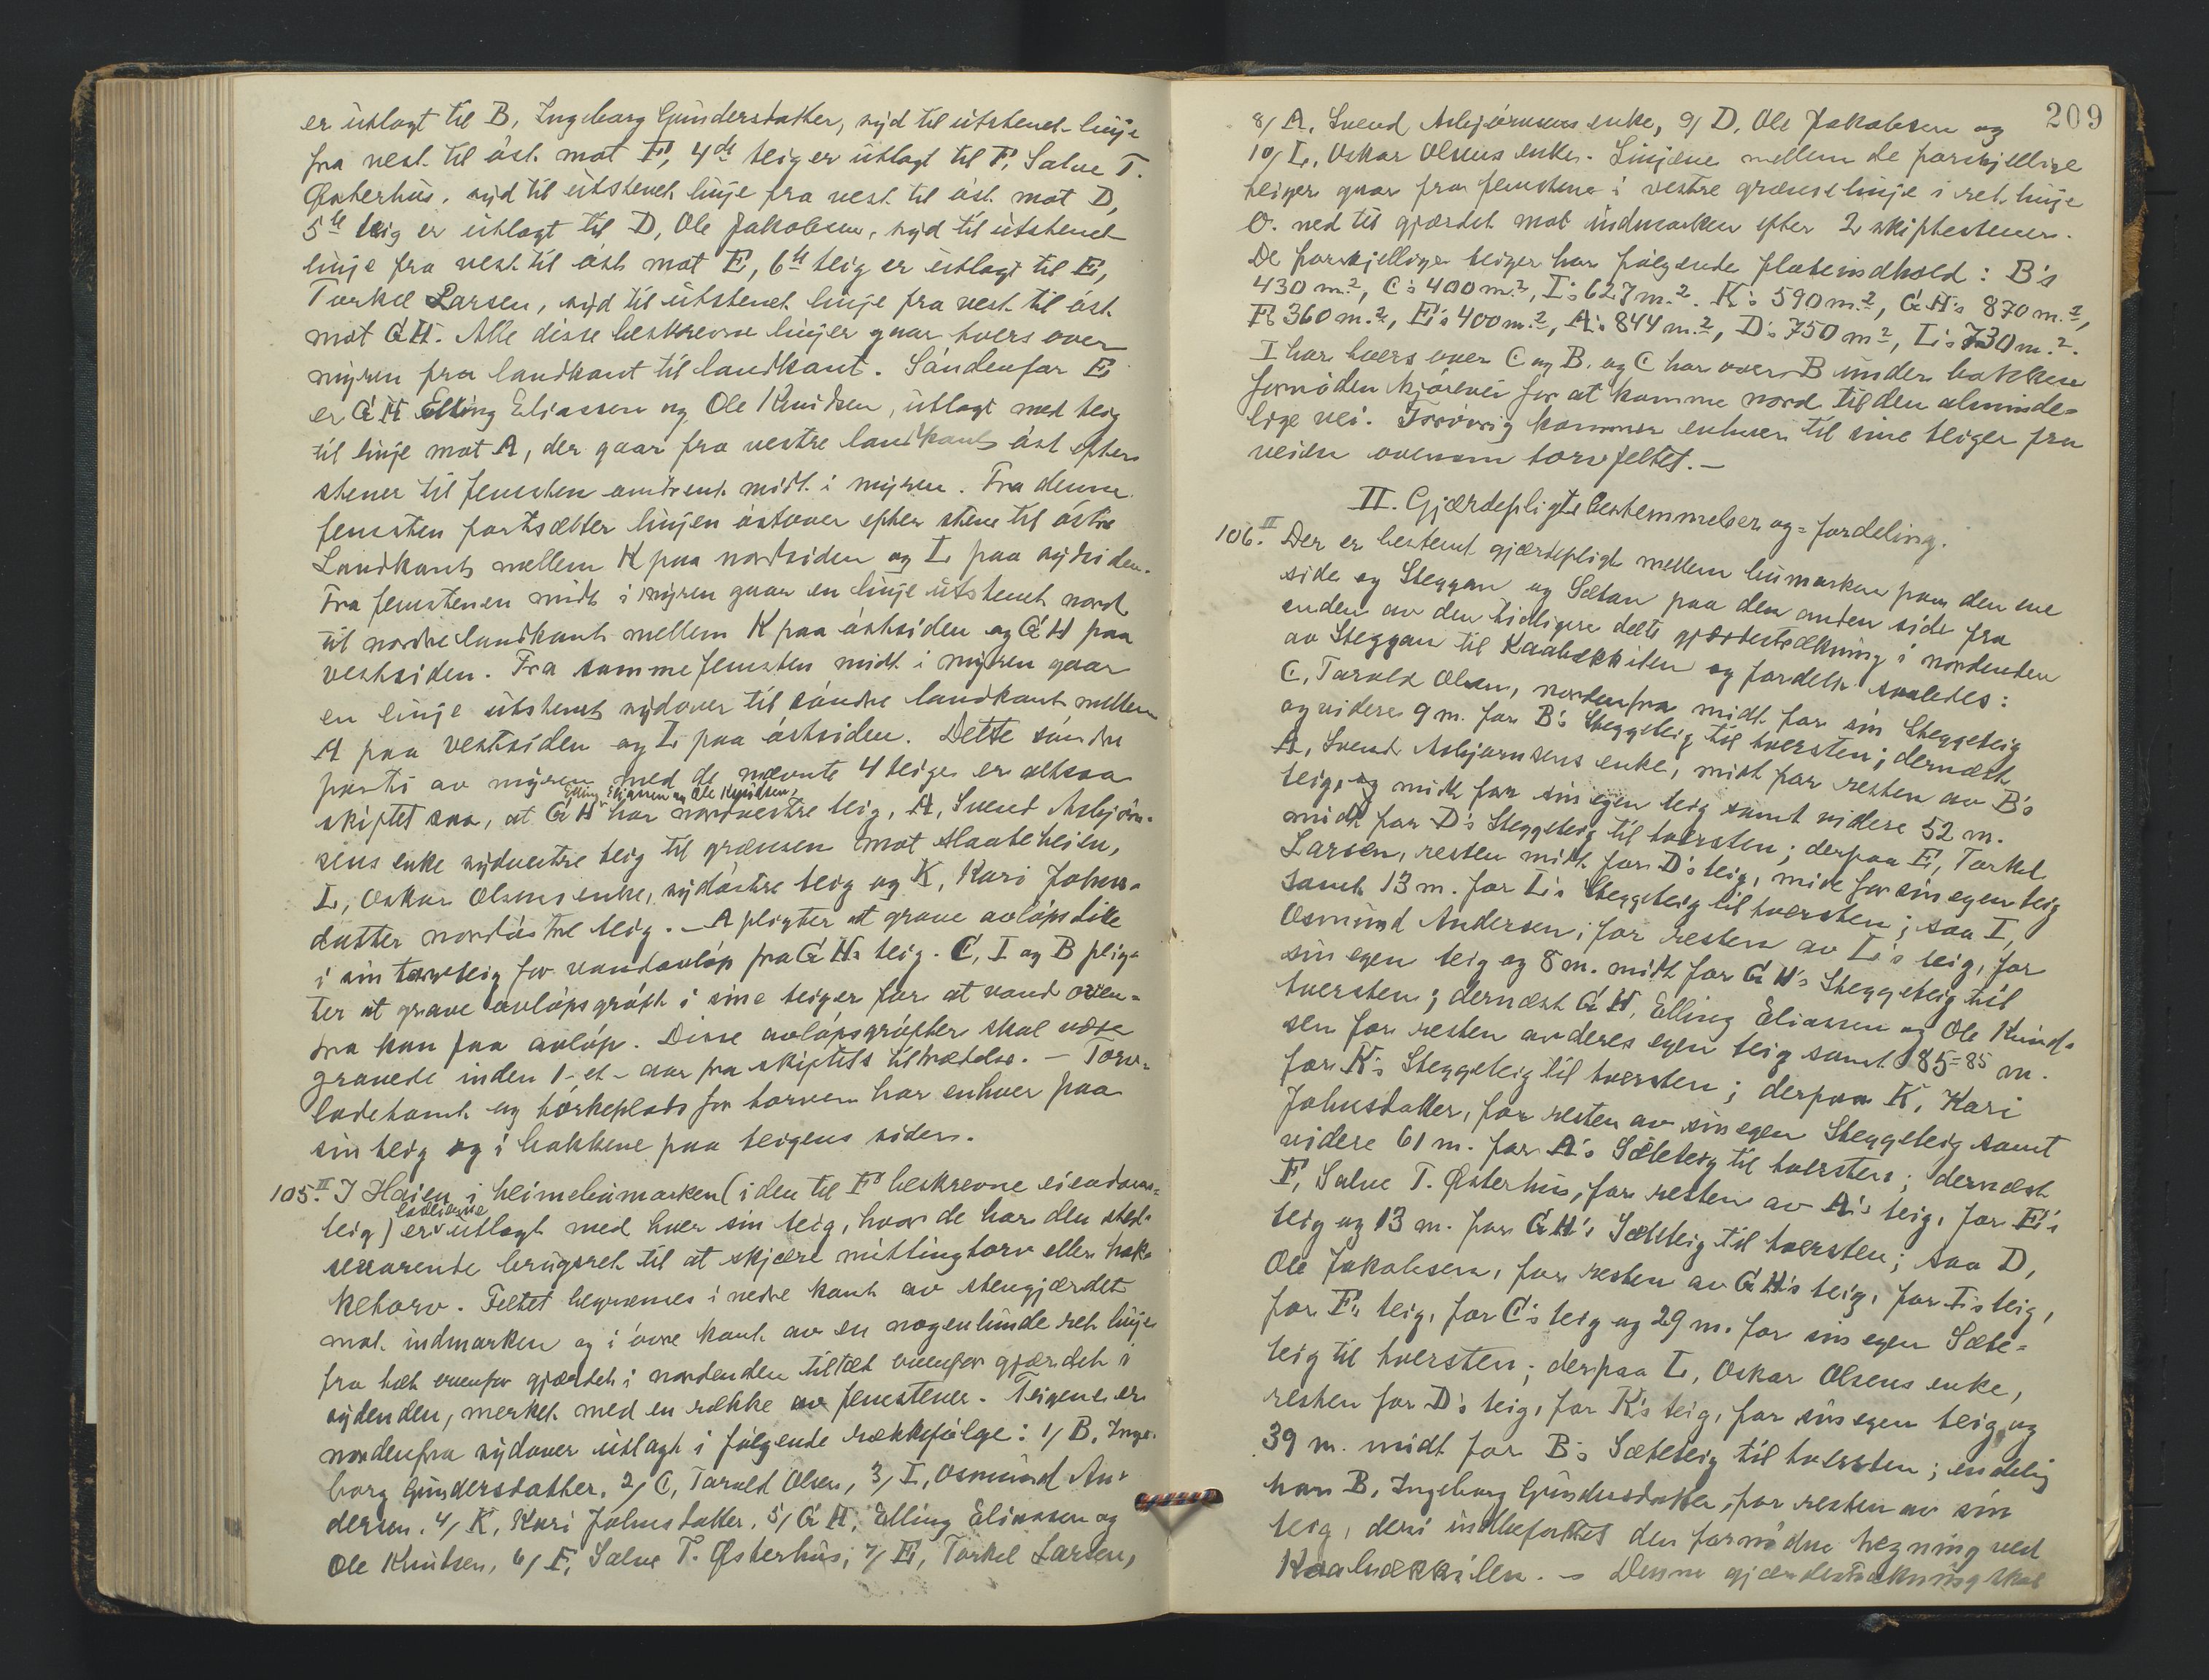 er utlagt til B, Ingeborg Gundersdatter, syd til utstenet linje
fra vest til øst mot F, 4de teig er utlagt til F, Salve T.
Østerhus, syd til utstenet linje fra vest til øst mot D,
5te teig er utlagt til D, Ole Jakobsen, syd til utstenet
linje fra vest til øst mot E, 6te teig er utlagt til E,
Torkel Larsen, syd til utstenet linje fra vest til øst
mot G H. Alle disse beskrevne linjer gaar tvers over
myren fra landkant til landkant. Søndenfor E
er G H Elling Eliassen og Ole Knudsen, utlagt med teig
til linje mot A, der gaar fra vestre landkant øst efter
stener til femsten omtrent midt i myren. Fra denne
femsten fortsætter linjen østover efter stene til østre
Landkant mellem K paa nordsiden og L paa sydsiden.
Fra femstenen midt i myren gaar en linje utstenet nord
til nordre landkant mellem K paa østsiden og G H paa
vestsiden. Fra samme femsten midt i myren gaar
en linje utstenet sydover til søndre landkant mellem
A paa vestsiden og L paa østsiden. Dette søndre
parti av myren med de nævnte 4 teiger er altsaa
Elling Eliassen og Ole Knudsen,
skiftet saa, at G H har nordvestre teig, A, Svend Asbjørn-
sens enke sydvestre teig til grænsen mot Haabeheien,
L, Oskar Olsens enke, sydøstre teig og K, Kari Johns-
datter nordøstre teig. – A pligter at grave avløpsdike
i sin torvteig for vandavløp fra G H's teig. C, I og B plig-
ter at grave avløpsgrøft i sine teiger for at vand oven-
fra kan faa avløp. Disse avløpsgrøfter skal være
gravede inden 1 - et - aar fra skiftets tiltrædelse. – Torv-
ladetomt og tørkeplads for torven har enhver paa
sin teig og i bakkene paa teigens sider.
105.II I Haien i heimehumarken (i den til F's beskrevne eiendoms-
lodeierne
teig) er utlagt med hver sin teig, hvor de har den sted-
sevarende brugsret til at skjære mittingtorv eller hak-
ketorv. Feltet begrænses i nedre kant av stengjærdet
mot indmarken og i øvre kant av en nogenlunde ret linje
fra tæt ovenfor gjærdet i nordenden til tæt ovenfor gjærdet i
sydenden, merket med en række av femstener. Teigene er
nordenfra sydover utlagt i følgende rækkefølge: 1/ B, Inge-
borg Gundersdatter, 2/ C, Tarald Olsen, 3/ I, Osmund An-
dersen, 4/ K, Kari Johnsdatter, 5/ G H, Elling Eliassen og
Ole Knudsen, 6/ F, Salve T. Østerhus, 7/ E, Torkel Larsen,
209
8/ A, Svend Asbjørnsens enke, 9/ D, Ole Jakobsen og
10/ L, Oskar Olsens enke. Linjene mellem de forskjellige
teiger gaar fra femstene i vestre grænselinje i ret linje
O. ned til gjærdet mot indmarken efter 2 skiftestener.
De forskjellige teiger har følgende flateindhold: B's
430 m.², C's 400 m.², I's 627 m.². K's 590 m.², G H's 870 m.²,
F's 360 m.², E's 400 m.², A's 844 m.², D's 750 m², L's 730 m.².
I har tvers over C og B, og C har over B under bakken
fornøden kjørevei for at komme nord til den alminde-
lige vei. Forøvrig kommer enhver til sine teiger fra
veien ovenom torvfeltet. –
II. Gjærdepligtsbestemmelser og = fordeling.
106.II Der er bestemt gjærdepligt mellem humarken paa den ene
side og Steggan og Sætan paa den anden side fra
enden av den tidligere delte gjærdestrækning i nordenden
av Steggan til Kaabækkilen og fordelt saaledes:
C, Tarald Olsen, nordenfra midt for sin Steggeteig
og videre 9 m. for B's Steggteig til tversten; dernæst
A, Svend Asbjørnsens enke, midt for resten av B's
teig, og midt for sin egen teig samt videre 52 m.
midt for D's Steggteig til tversten; derpaa E, Torkel
Larsen, resten midt for D's teig, midt for sin egen teig
samt 13 m. for L's Steggteig til tversten; saa I,
Osmund Andersen, for resten av L's teig, for
sin egen teig og 8 m. midt for G H's Steggteig til
tversten; dernæst G H, Elling Eliassen og Ole Knud-
sen for resten av deres egen teig samt 85=85 m.
for K's Steggeteig til tversten; derpaa K, Kari
Johnsdatter, for resten av sin egen Steggeteig samt
videre 61 m. for A's Sæteteig til tversten; dernæst
F, Salve T. Østerhus, for resten av A's teig, for E's
teig og 13 m. for G H's Sæteteig til tversten; saa D,
Ole Jakobsen, for resten av G H's teig, for I's teig,
for F's teig, for C's teig og 29 m. for sin egen Sæte-
teig til tversten; derpaa L, Oskar Olsens enke,
resten for D's teig, for K's teig, for sin egen teig og
39 m. midt for B's Sæteteig til tversten; endelig
har B, Ingeborg Gundersdatter, for resten av sin
teig, deri indbefattet den fornødne hegning ved
Kaabækkilen. – Denne gjærdestrækning skal